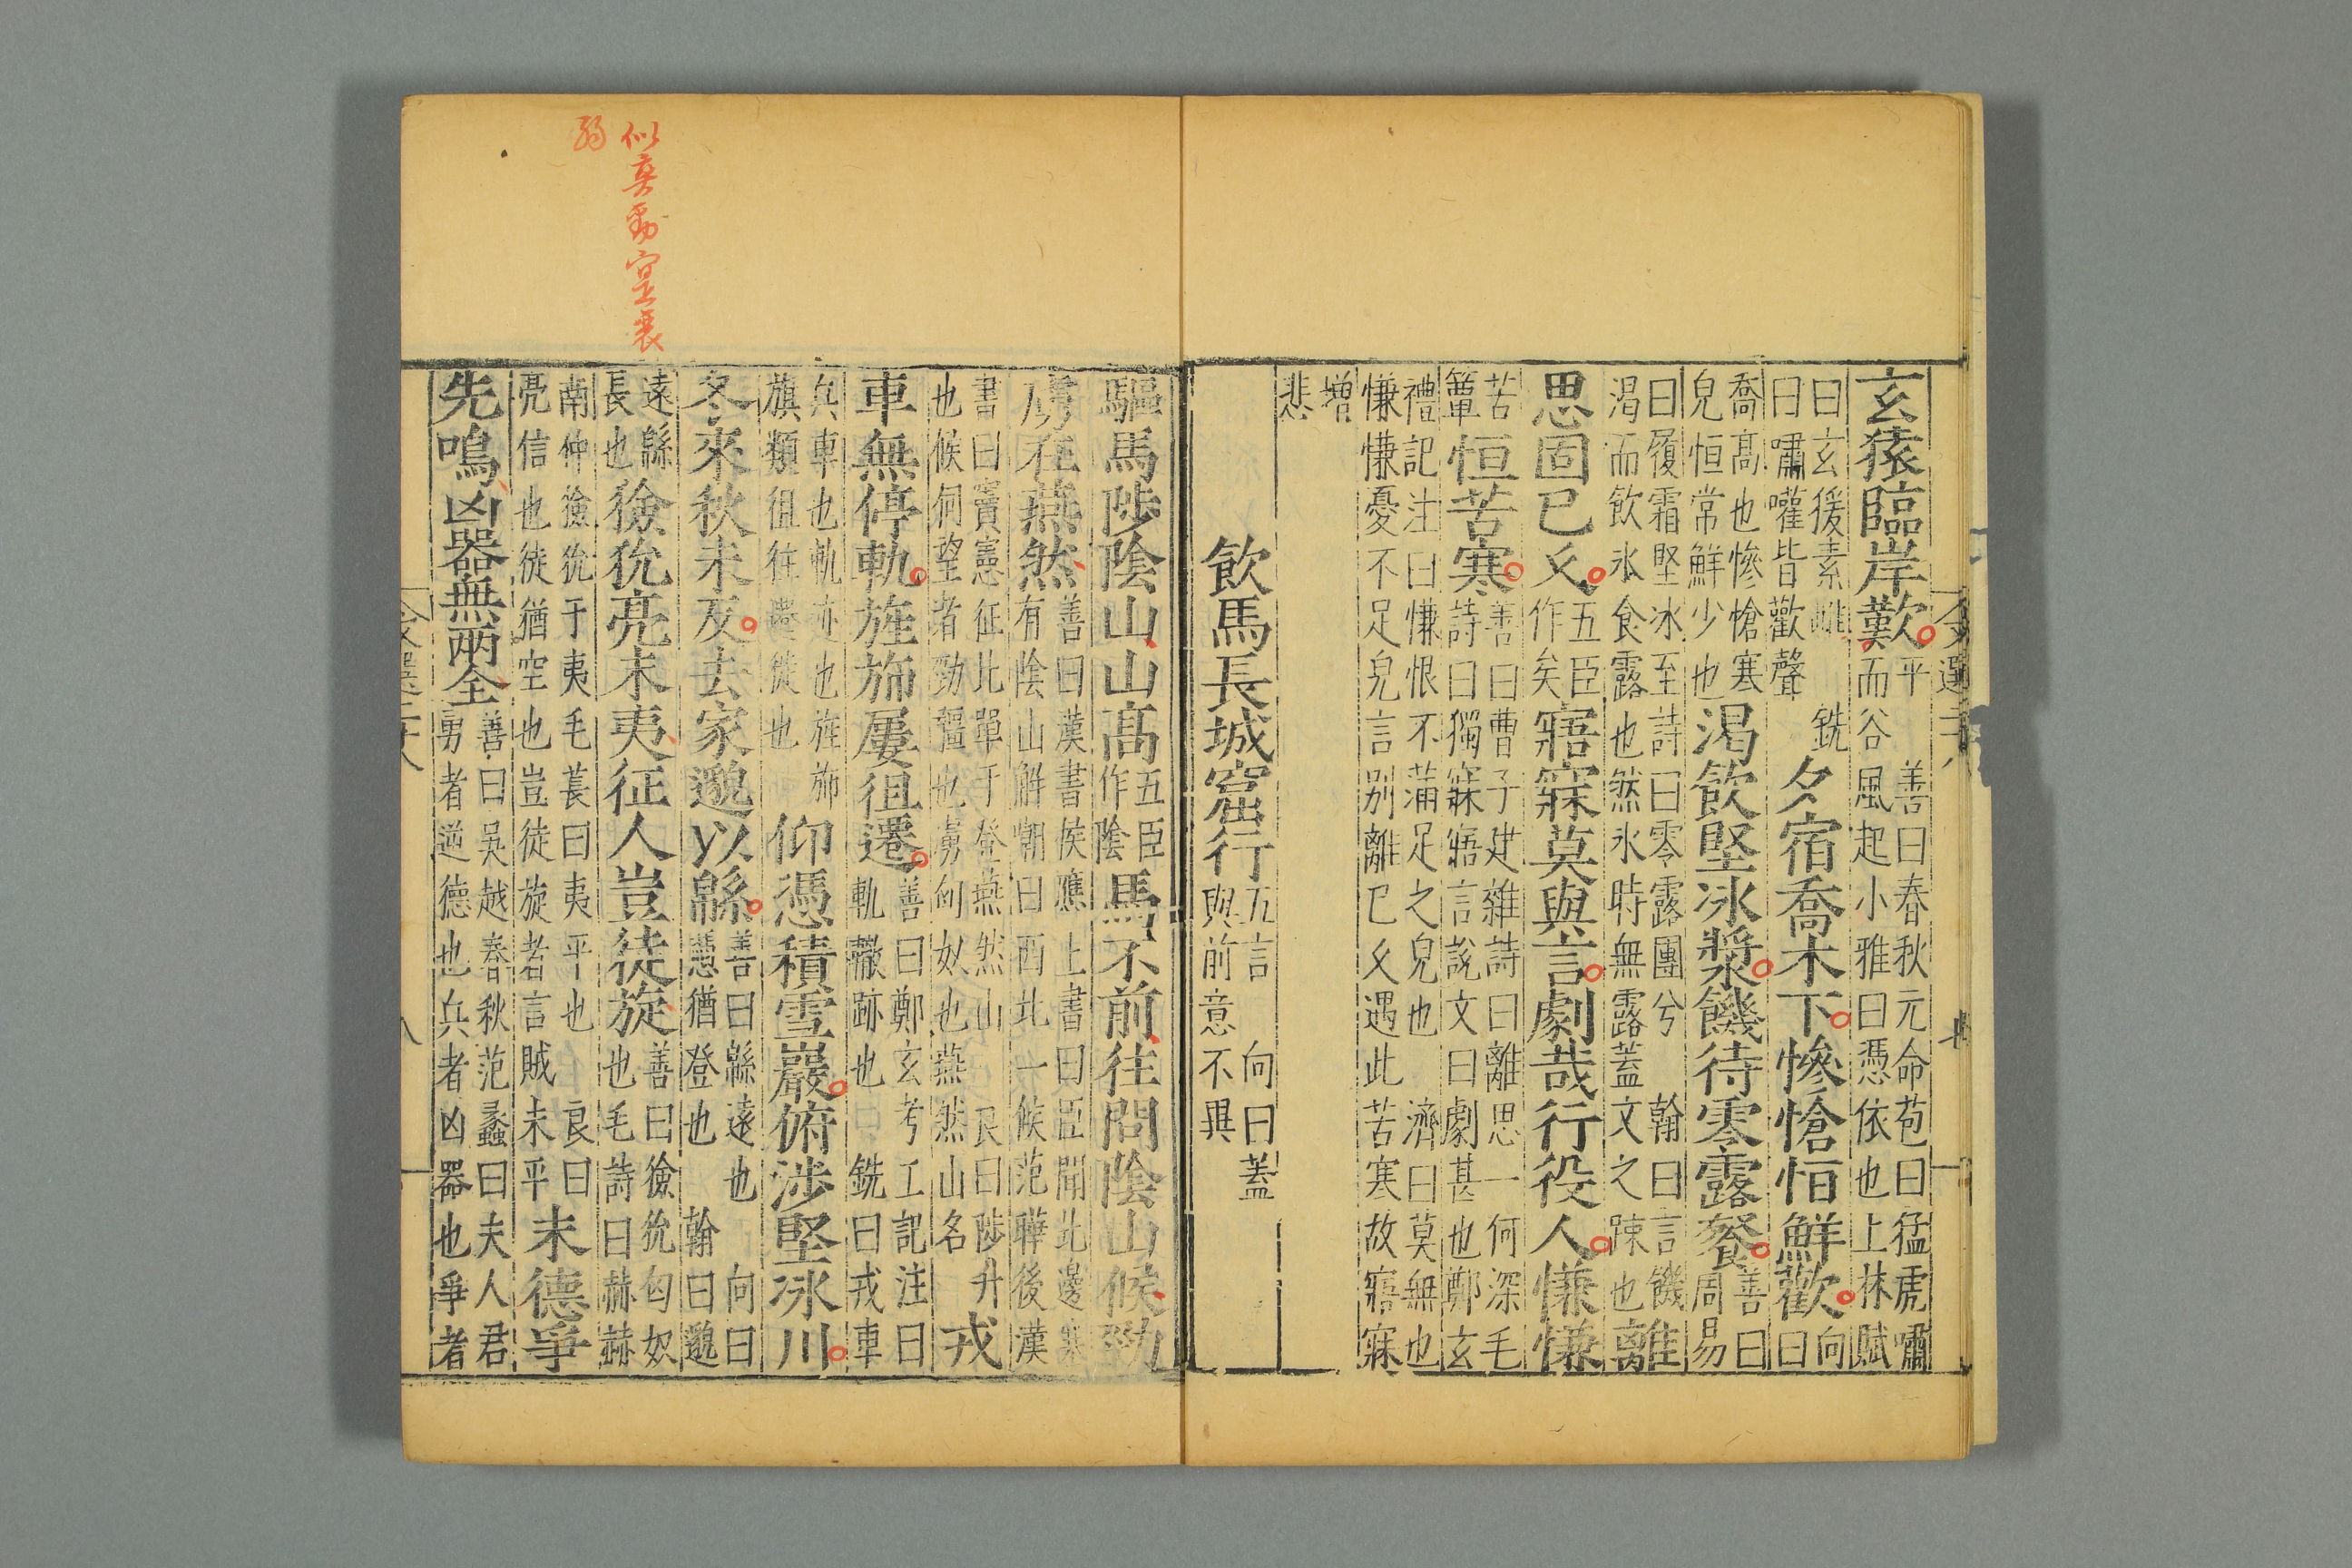 玄猿臨岸歎平而谷風起小雅曰憑依也上林賦善曰春秋元命苞曰猛虎嘯
曰玄猨素雌曰嘯嚾皆歡聲銑夕宿喬木下慘愴恒鮮歡向曰
喬髙也慘愴寒皃恒常鮮少也渴飲堅冰漿饑待零露餐善曰周易
曰履霜堅冰至詩曰零露團兮渴而飲氷食露也然氷時無露蓋文之踈也翰曰言饑離
思固已乆五臣作矣寤寐莫與言劇哉行役人慊慊
恒苦寒善曰曹子建雜詩曰離思一何深毛詩曰獨寐寤言說文曰劇甚也鄭玄
禮記注曰慊恨不滿足之皃也濟曰莫無也慊慊憂不足皃言别離已乆遇此苦寒故寤寐
增悲
飲馬長城窟行五言向曰蓋與前意不異
驅馬陟陰山山髙五臣作陰馬不前往問陰山候勁
虜在燕然善曰漢書侯應上書曰臣聞北邊塞有陰山觧嘲曰西北一候范曄後漢
書曰竇憲征北單于登燕然山良曰陟升也候伺望者勁彊也虜匈奴也燕然山名戎
車無停軌旌斾屢徂遷善曰鄭玄考工記注曰軌轍跡也銑曰戎車
兵車也軌亦也旌斾旗類徂往遷徙也仰憑積雪巖俯涉堅冰川
冬來秋未反去家邈以緜善曰緜遠也憑猶登也翰曰邈向曰
遠緜長也獫狁亮未夷征人豈徒旋善曰獫狁匈奴也毛詩曰赫赫
南仲獫狁于夷毛萇曰夷平也亮信也徒猶空也豈徒旋者言賊未平良曰末德爭
先鳴凶器無兩全善曰吳越春秋范蠡曰夫人君勇者逆德也兵者凶器也爭者